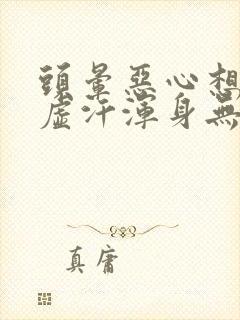 頭暈惡心想
虛汗渾身無
真庸